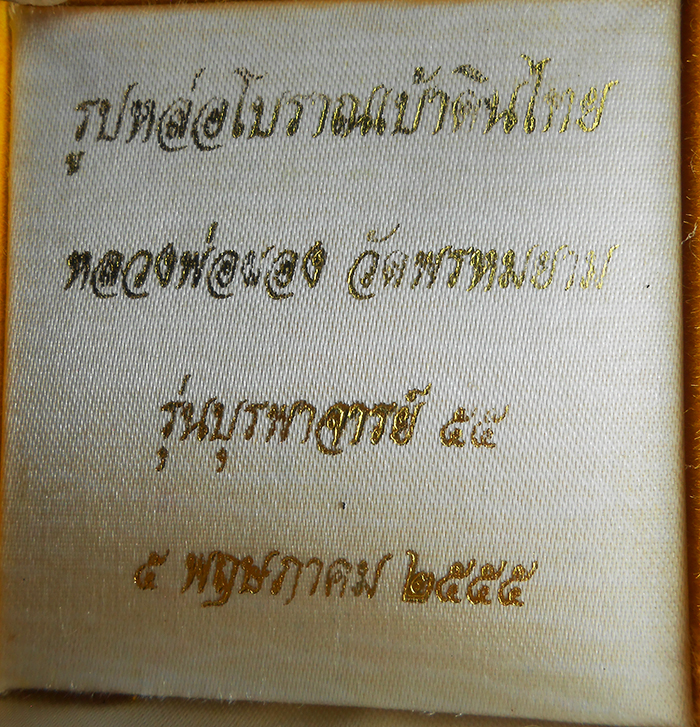 รูปหล่อโบราณเบ้าดินไทย
หลวงพ่อผอง วัดพรหมยาม
รุ่นบุรพาจารย์ ๕๕
๕ พฤษภาคม ๒๕๕๕